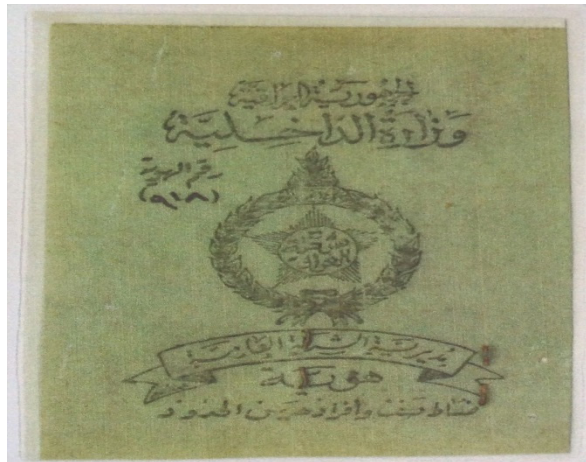 الجمهورية العراقية
وزارة الداخلية
رقم الهوية
(٩١٨)
شرطة
العراق
مديرية الشرطة العامة
هوية
وأفراد حرس الحدود